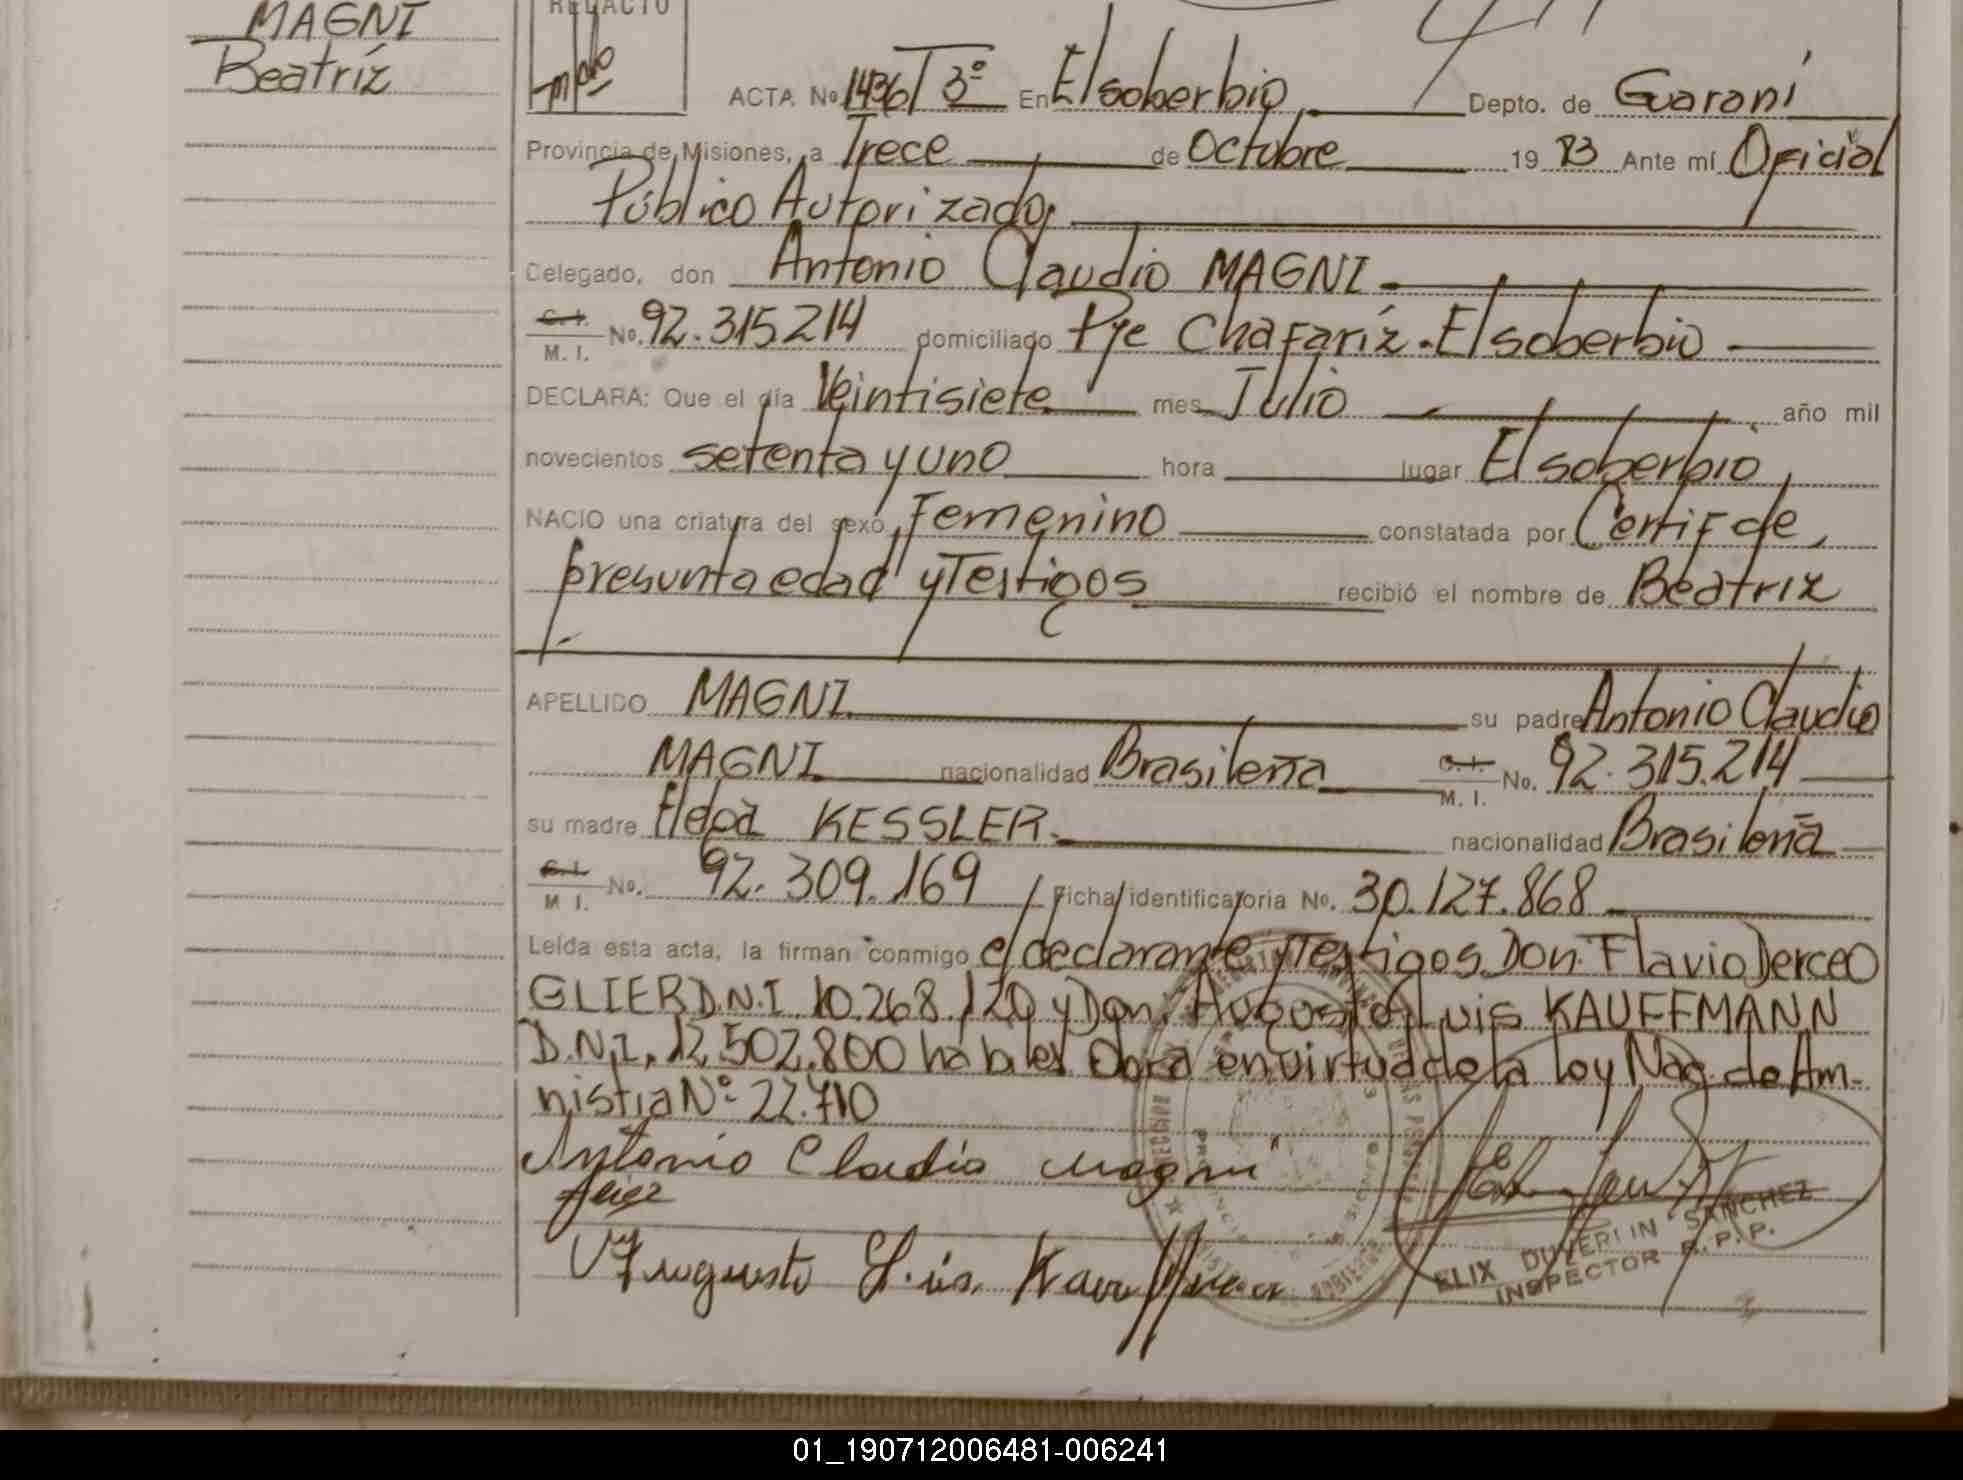 MAGNI
Beatríz
RELACTO
ACTA No 1436 T 3º En El soberbio Depto. de Guaraní
Provincia de Misiones, a Trece de Octubre 19 83 Ante mí Oficial
Público Autorizado
Delegado, don Antonio Claudio MAGNI
C. I.
M. I. No. 92.315.214 domiciliado Pje Chafaríz. El soberbio
DECLARA: Que el día Veintisiete mes Julio año mil
novecientos setenta y uno hora lugar El soberbio,
NACIO una criatura del sexo Femenino constatada por Certif de
presunta edad y Testigos recibió el nombre de Beatriz
APELLIDO MAGNI su padre Antonio Claudio
MAGNI nacionalidad Brasileña C. I. M. I. No. 92.315.214
su madre KESSLER. nacionalidad Brasileña
C. I.
M. I. No. 92.309.169 Ficha identificatoria No. 30.127.868
Leída esta acta, la firman conmigo el declarante y Testigos Don. Flavio Derceo
GLIER D.N.I. 10.268.120 y Don. Augosto Luis KAUFFMANN
D.N.I. 12.502.800 habiles Obra en virtud de la ley Nac. de Am-
nistia Nº 22.710
Antonio Claudio Magni
Augusto Luis Kauffman
ELIX DUVERLIN SANCHEZ
INSPECTOR R. P. P.
01_190712006481-006241